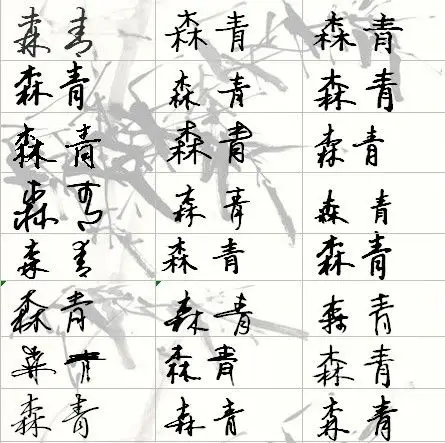 森青 森青 森青
森青 森青 森青
森青 森青 森青
森青 森青 森青
森青 森青 森青
森青 森青 森青
森青 森青 森青
森青 森青 森青